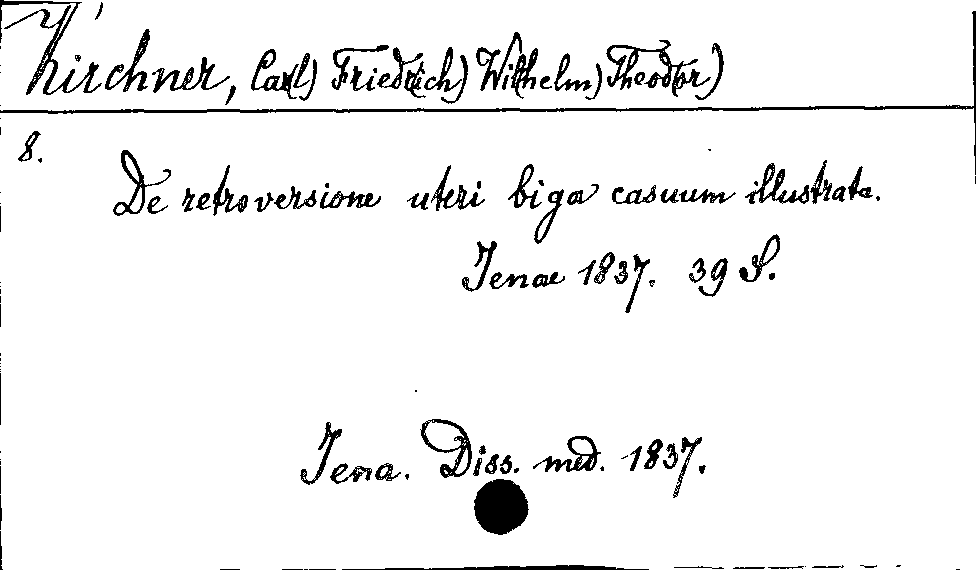 Kirchner, Carl) Friedrich) Wilhelm) Theodor)
8.
De retroversione uteri biga casuum illustrata.
Jenae 1837. 39 S.
Jena. Diss. med. 1837.